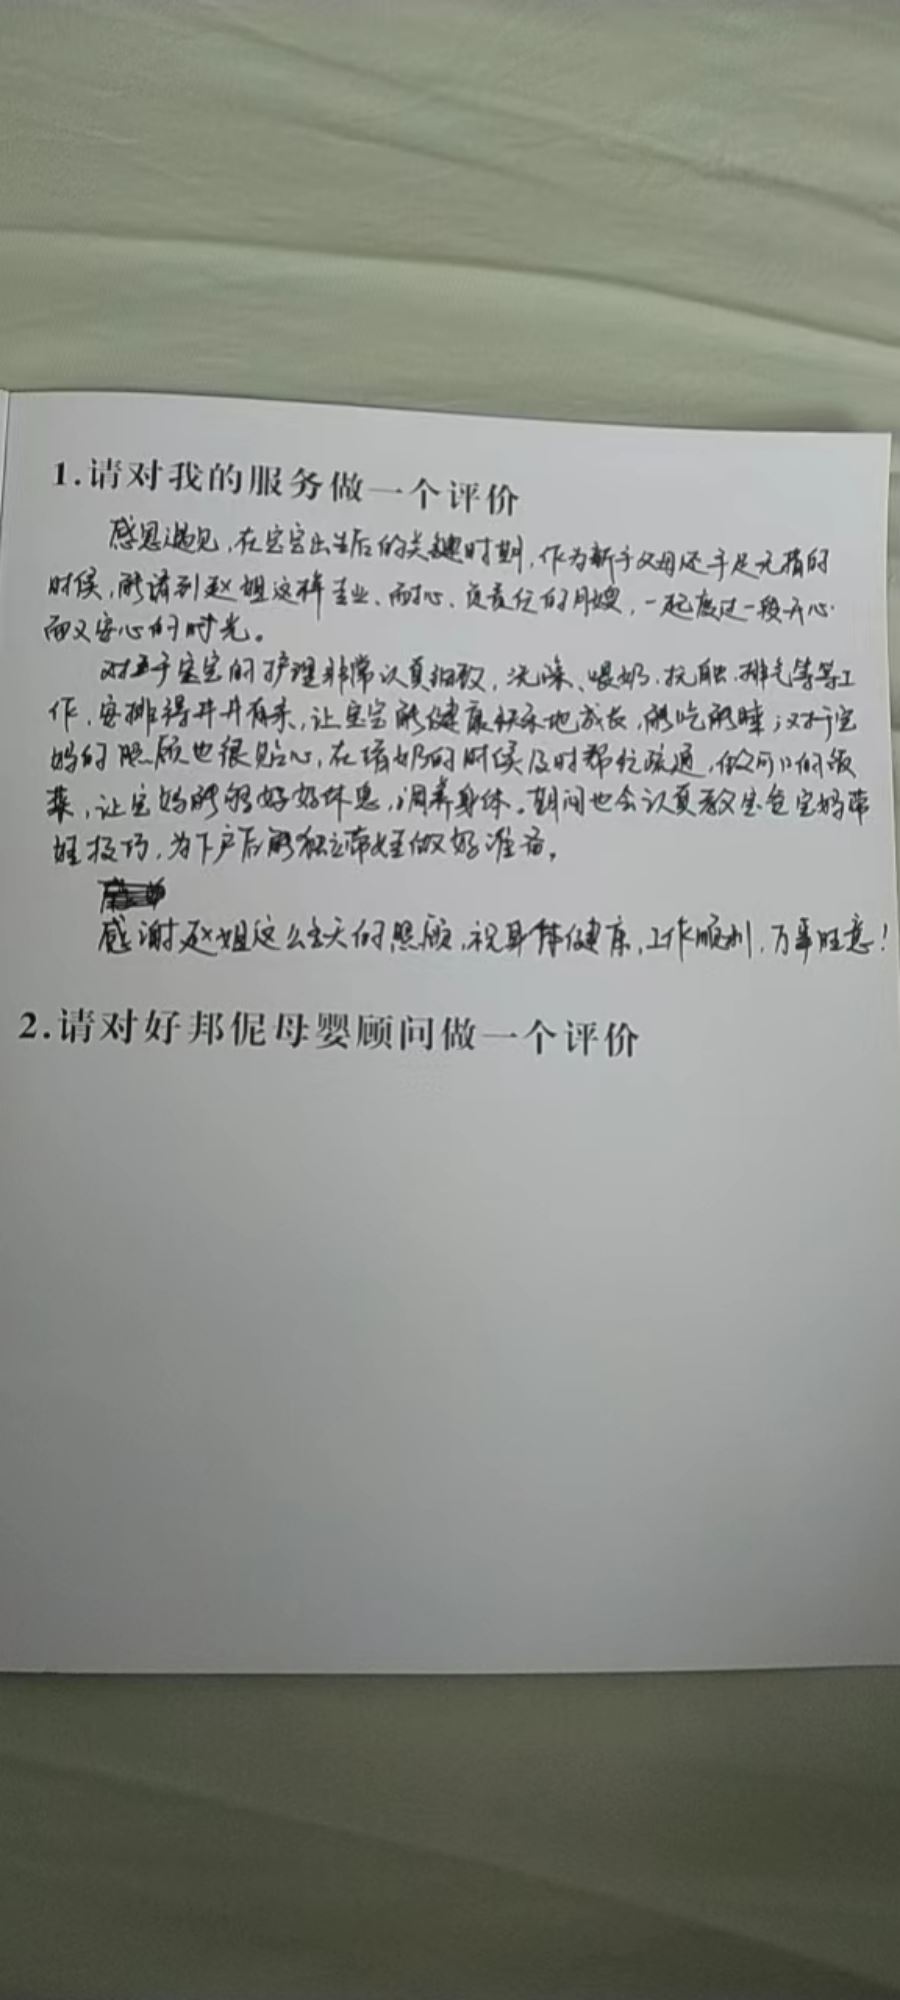 1.请对我的服务做一个评价
感恩遇见,在宝宝出生后的关键时期,作为新手父母还手足无措的
时候,能请到赵姐这样专业、耐心、负责任的月嫂,一起度过一段开心
而又安心的时光。
对于宝宝的护理非常认真细致,洗澡、喂奶、抚触、排气等等工
作,安排得井井有条,让宝宝能健康快乐地成长,能吃能睡;对于宝
妈的照顾也很贴心,在堵奶的时候及时帮忙疏通,做可口的饭
菜,让宝妈能够好好休息,调养身体。期间也会认真教宝爸宝妈带
娃技巧,为下户后能独立带娃做好准备。
感谢赵姐这么多天的照顾,祝身体健康,工作顺利,万事胜意!
2.请对好邦伲母婴顾问做一个评价